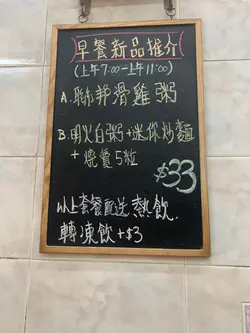 早餐新品推介
(上午7:00-上午11:00)
A. 聯邦滑雞粥
B. 明火白粥+迷你炒麵
+ 燒賣5粒
$33
以上套餐配送熱飲,
轉凍飲+$3